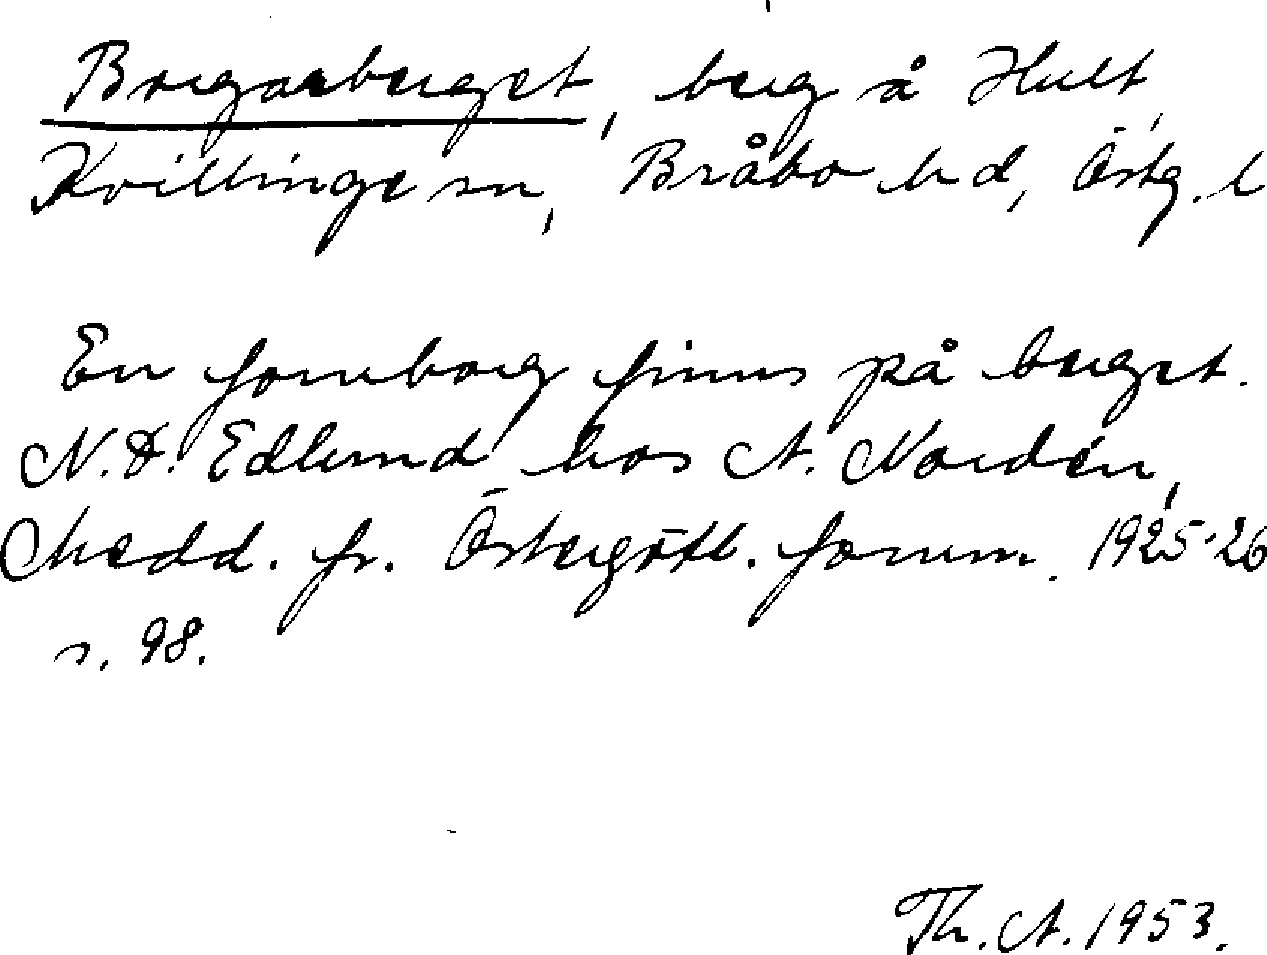 Borgarberget, berg å Hult,
Kvillinge sn, Bråbo hd, Östg. l
En fornborg finns på berget.
N. D. Edlund hos A. Nordén,
Medd. fr. Östergötl. fornm. 1925-26
s. 98.
Th. A. 1953.